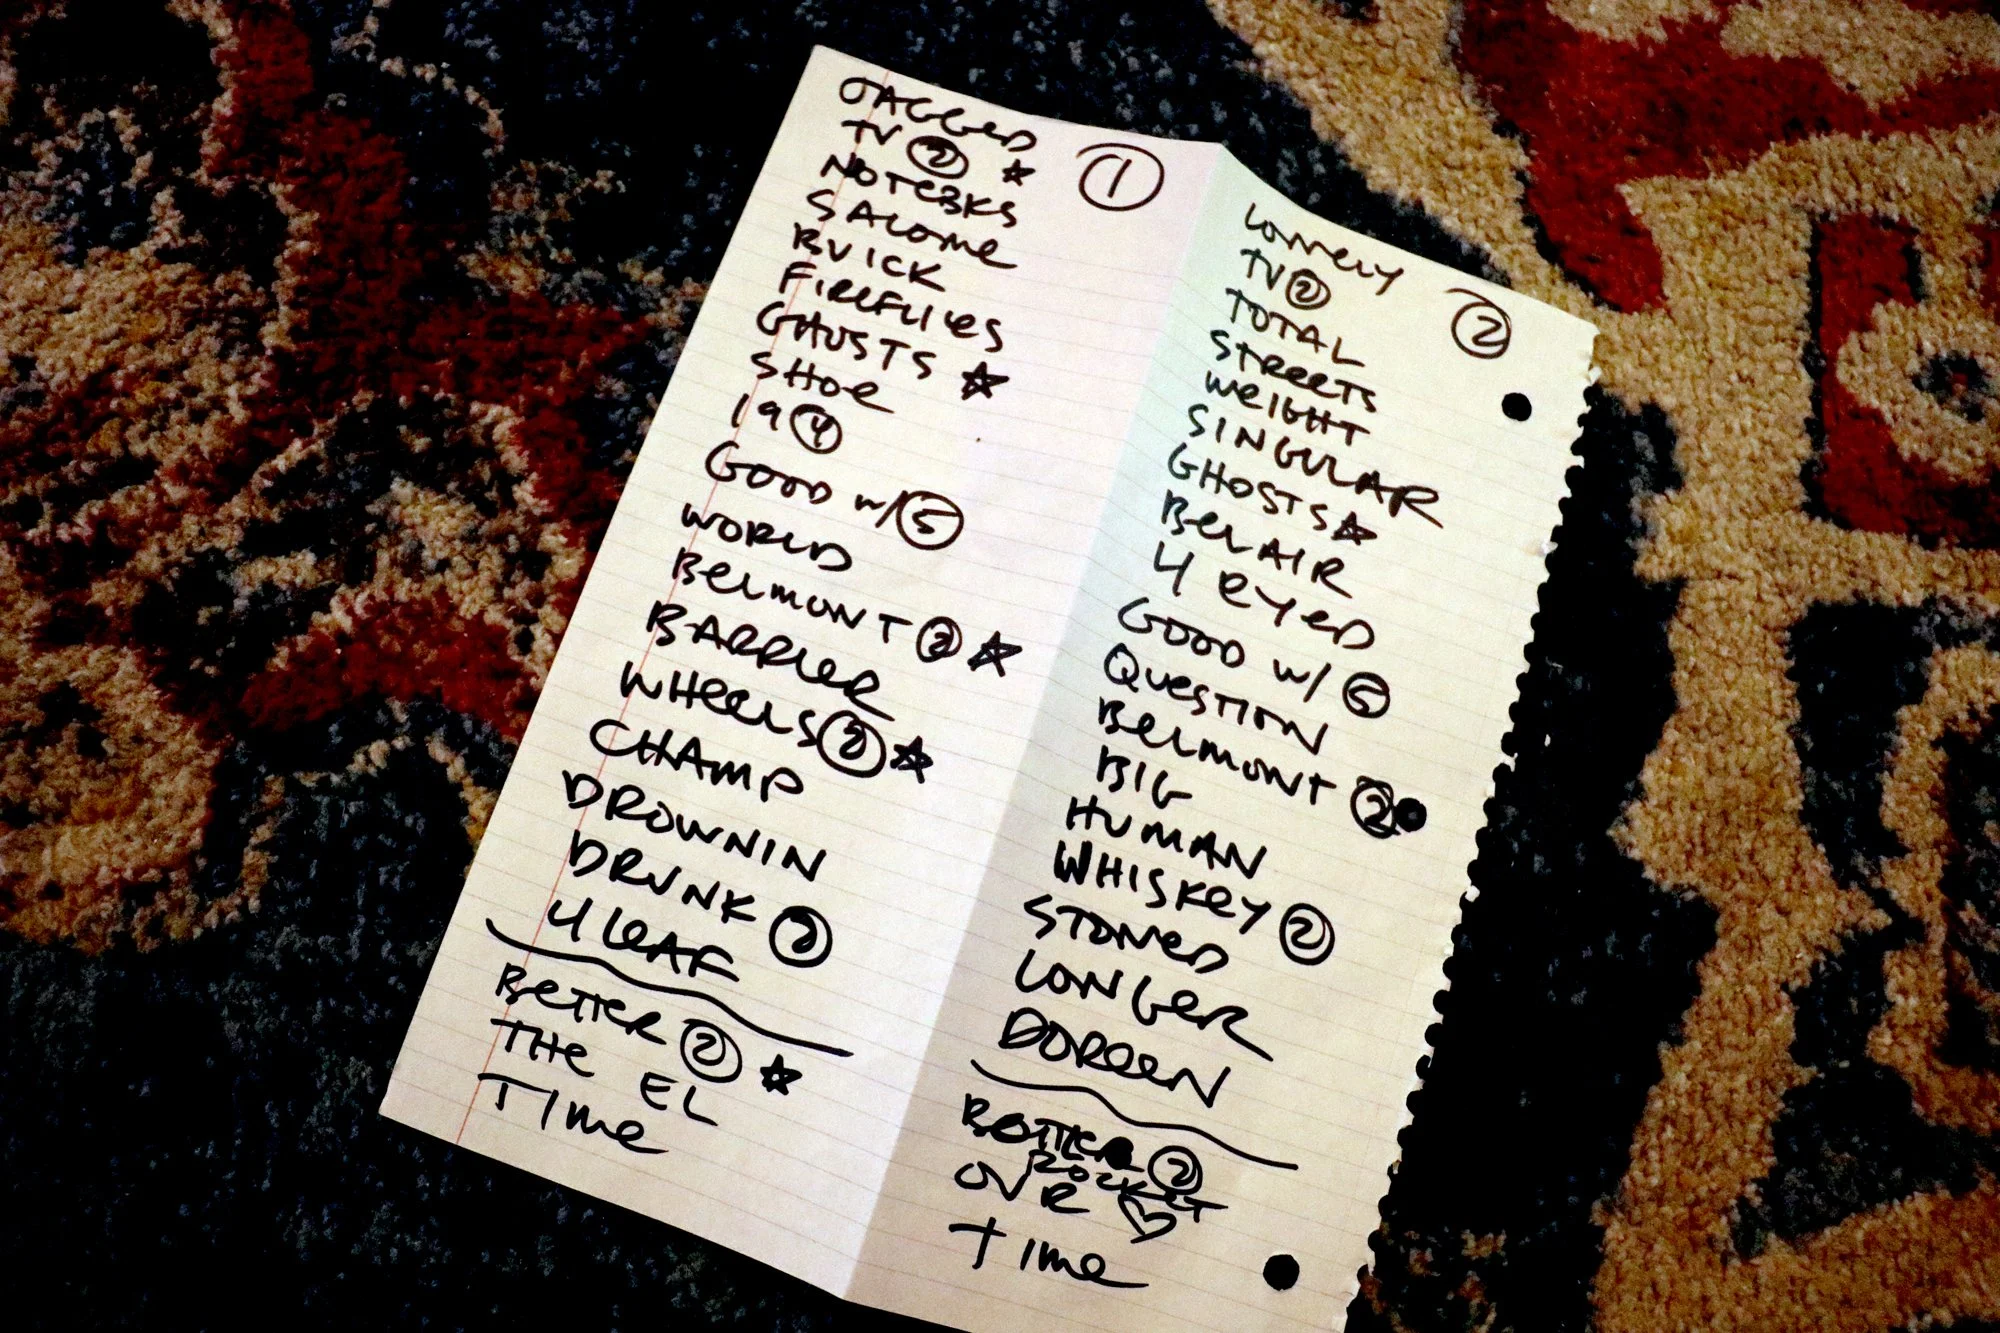 JAGGED
TV ② ★
①
NOTEBKS
SALOME
BUICK
FIREFLIES
GHOSTS ★
SHOE
19 ④
GOOD w/ ⑤
WORLD
BELMONT ② ★
BARRIER
WHEELS ② ★
CHAMP
DROWNIN
DRUNK ②
4 LEAF
BETTER ② ★
THE EL
TIME
LONELY
②
TV ②
TOTAL
STREETS
WEIGHT
SINGULAR
GHOSTS ★
BELAIR
4 EYED
GOOD w/ ⑤
QUESTION
BELMONT ②
BIG
HUMAN
WHISKEY ②
STONED
LONGER
DOREEN
BETTER ②
ROCKET
OUR ♡
TIME